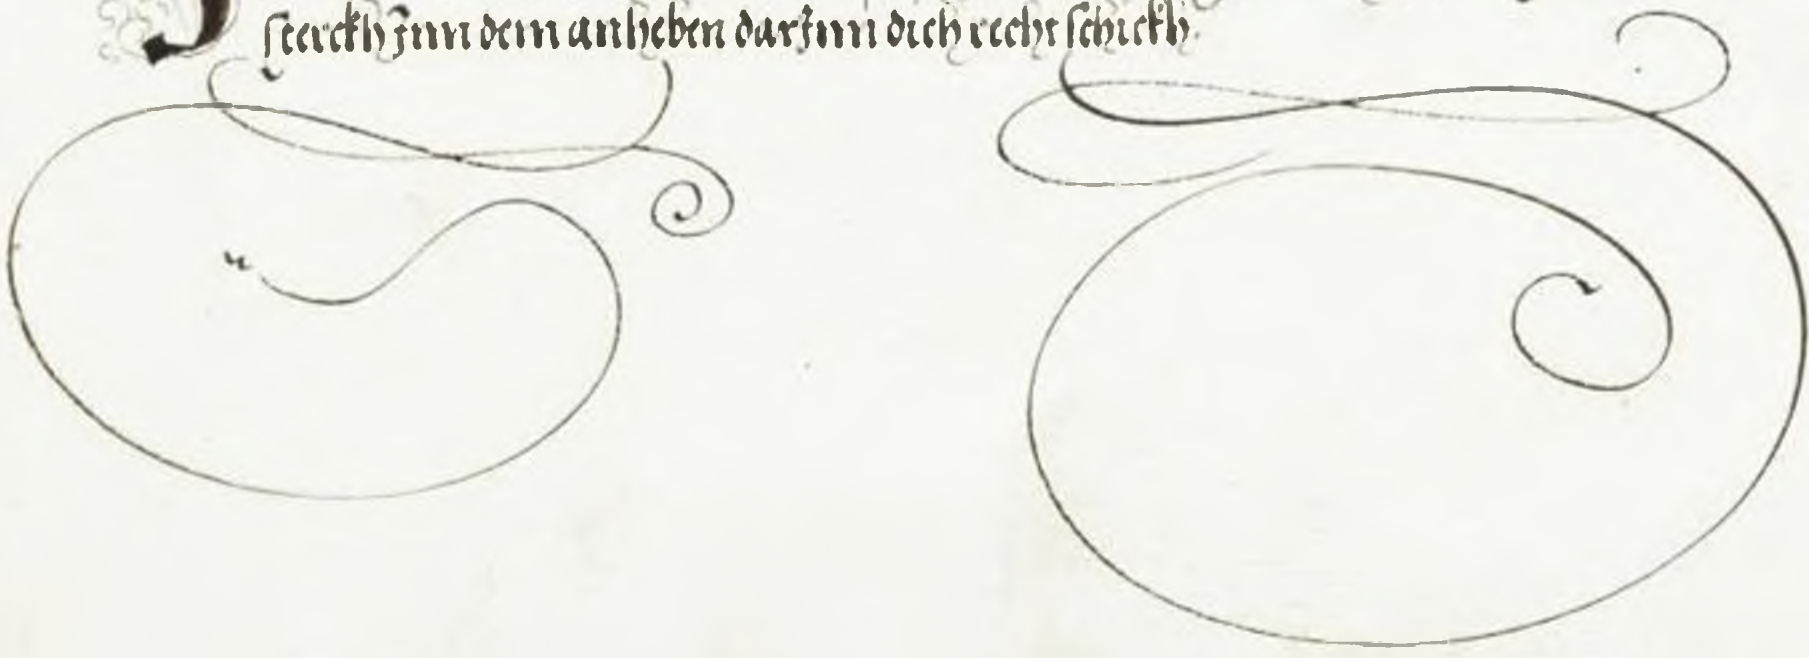 sterckh jnn dem anheben darJnn dich recht schickh.